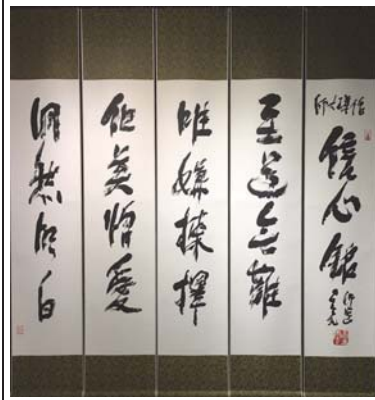 僧璨大師
信心銘
至道無難
唯嫌揀擇
但莫憎愛
洞然明白